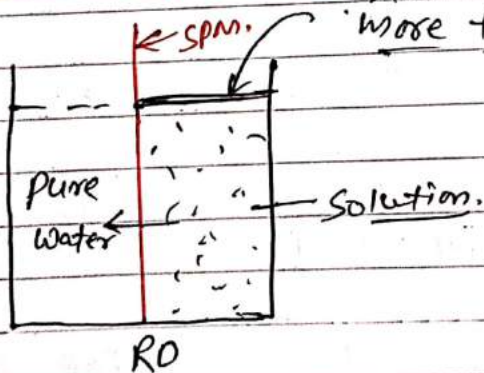 SPM.
More +
Pure
Water
Solution.
RO